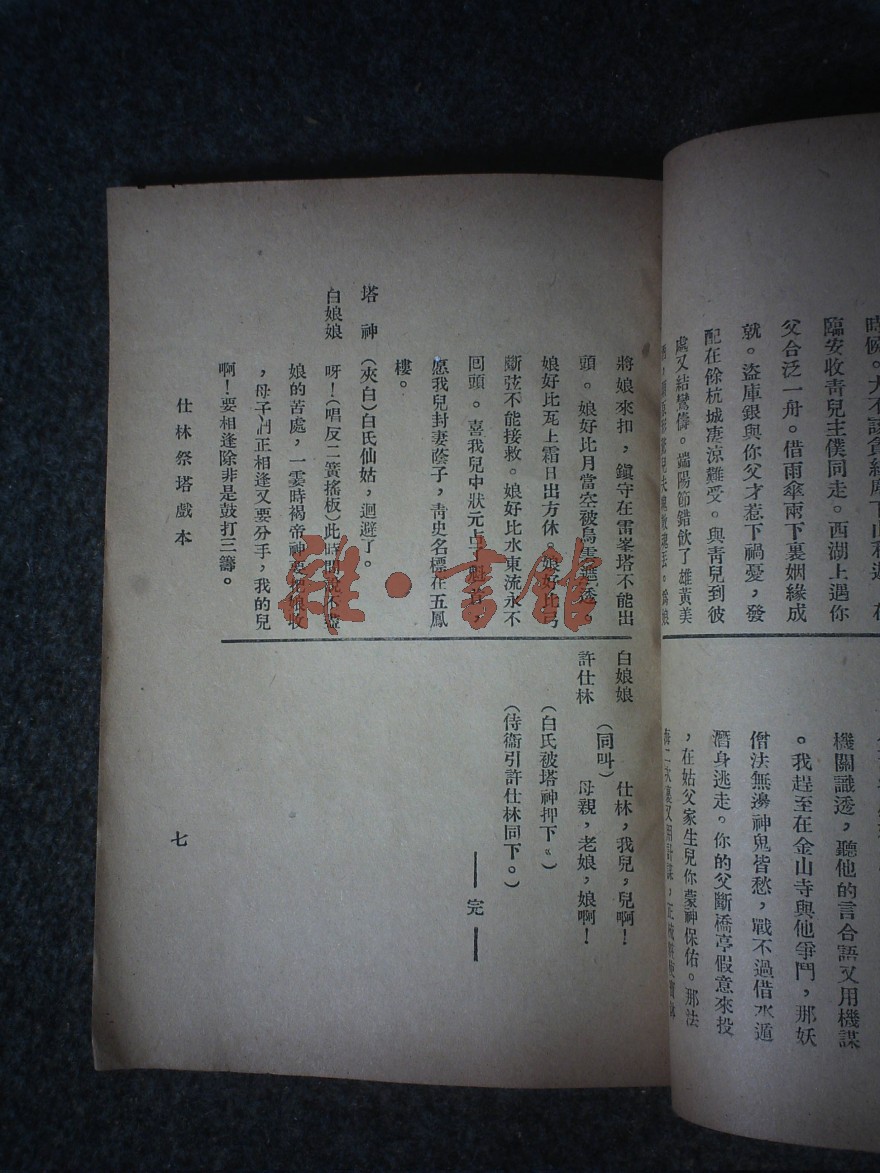 臨安收青兒主僕同走。西湖上遇你
父合泛一舟。借雨傘兩下裏姻緣成
就。盜庫銀與你父才惹下禍憂,發
配在餘杭城凄涼難受。與青兒到彼
處又結鸞儔。端陽節錯飲了雄黃美
機關識透,聽他的言合語又用機謀
。我趕至在金山寺與他爭鬥,那妖
僧法無邊神鬼皆愁,戰不過借水遁
潛身逃走。你的父斷橋亭假意來投
,在姑父家生兒你蒙神保佑。那法
將娘來扣,鎮守在雷峯塔不能出
頭。娘好比月當空被烏雲遮透。
娘好比瓦上霜日出方休。娘好比弓
斷弦不能接救。娘好比水東流永不
回頭。喜我兒中狀元占了魁首。
愿我兒封妻蔭子,青史名標在五鳳
樓。
塔 神 (夾白)白氏仙姑,迴避了。
白娘娘 呀!(唱反二簧搖板)此時間說不盡
娘的苦處,一霎時褐帝神要把娘收
,母子們正相逢又要分手,我的兒
啊!要相逢除非是鼓打三籌。
白娘娘 (同叫) 仕林,我兒,兒啊!
許仕林 母親,老娘,娘啊!
(白氏被塔神押下。)
(侍衞引許仕林同下。)
——完——
仕林祭塔戲本
七
雜·書館